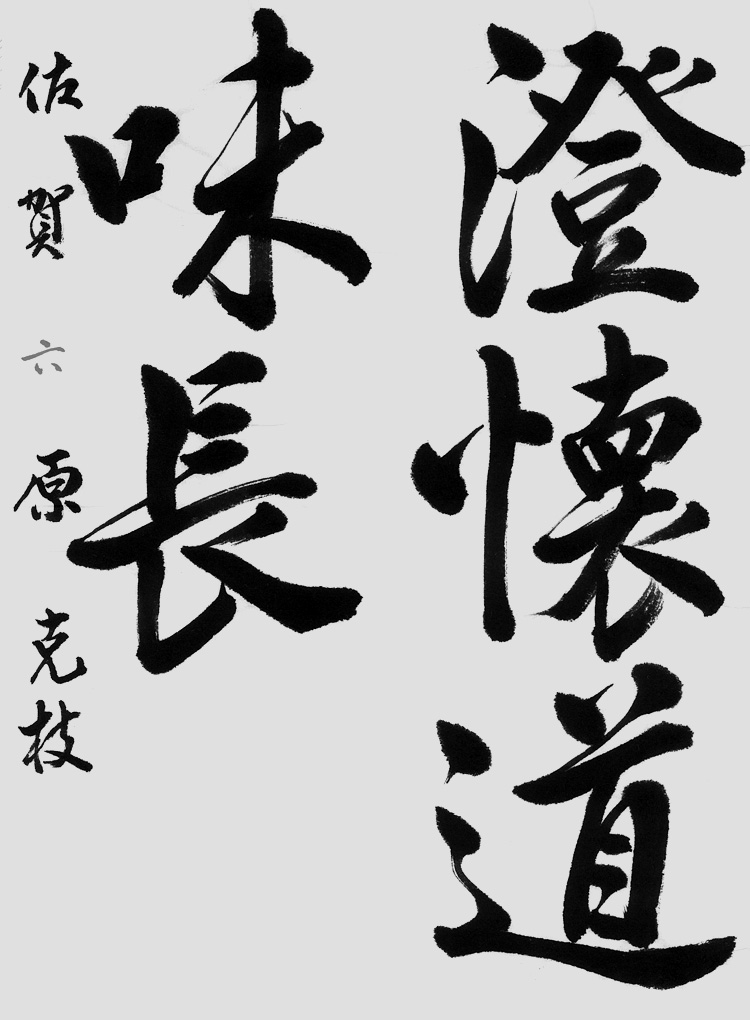 澄懐道
味長
佐賀 六 原 克枝